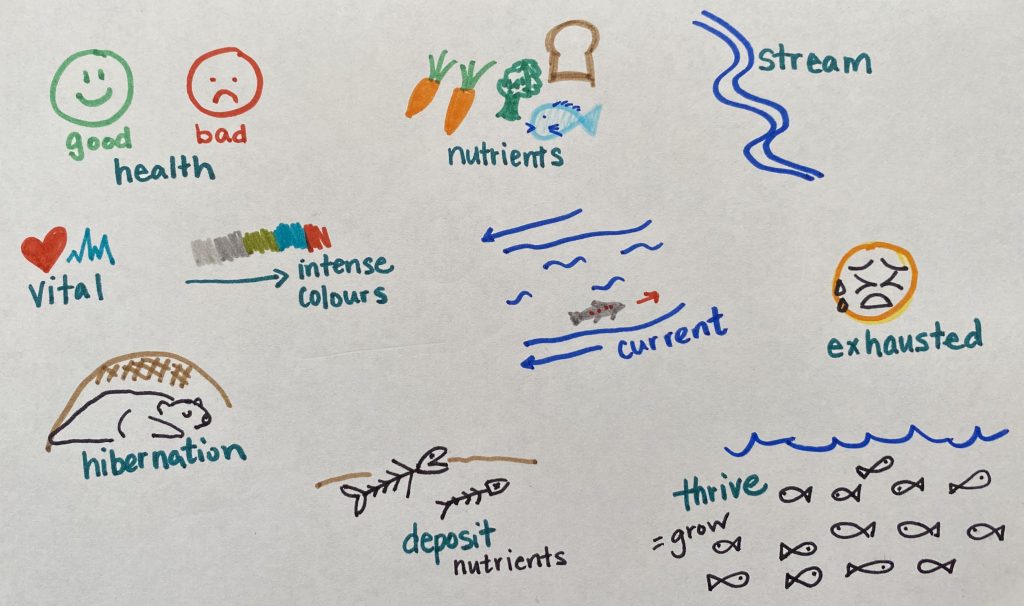 good
bad
health
nutrients
stream
vital
intense
colours
current
exhausted
hibernation
deposit
nutrients
thrive
= grow